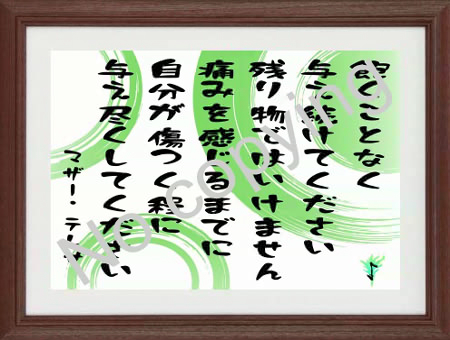 飽くことなく
与え続けてください
残り物ではいけません
痛みを感じるまでに
自分が傷つく程に
与え尽くしてください
マザー・テレサ
No copying